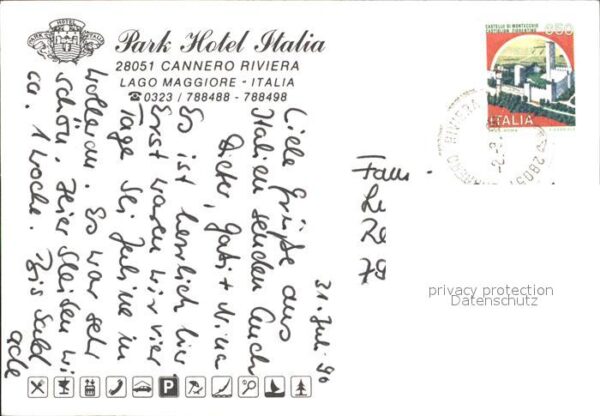 HOTEL
PARK ITALIA
Park Hotel Italia
28051 CANNERO RIVIERA
LAGO MAGGIORE - ITALIA
☎ 0323 / 788488 - 788498
CASTELLO DI MONTECCHIO
CASTIGLION FIORENTINO
850
ITALIA
CANNERO RIVIERA
2805
31. Juli 90
Liebe Grüße aus
Italien senden Euch
Dieter, Gabi + Nina
Es ist herrlich hier
Erst waren wir vier
Tage bei Juliane in
Es war sehr
schön. Hier bleiben wir
ca. 1 Woche. Bis bald
ade
Fam.
Le
Re
78
P
privacy protection
Datenschutz